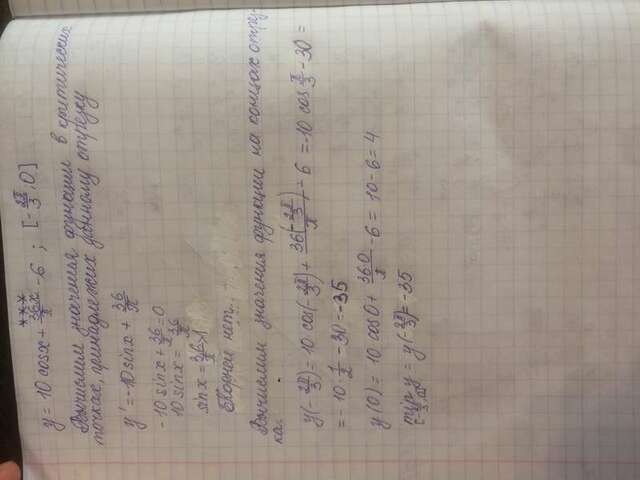 ***
y = 10 cosx + 36x/π - 6 ; [-2π/3; 0]
Вычислим значения функции в критических
точках, принадлежих данному отрезку
y' = -10 sinx + 36/π
-10 sinx + 36/π = 0
10 sinx = 36/π
sinx = >1
Корней нет.
Вычислим значения функции на концах отрез-
ка.
y(-2π/3) = 10 cos(-2π/3) + 36(-2π/3)/π - 6 = -10 cos π/3 - 30 =
= -10 · 1/2 - 30 = -35
y(0) = 10 cos0 + 36·0/π - 6 = 10 - 6 = 4
y = y(-2π/3) = -35